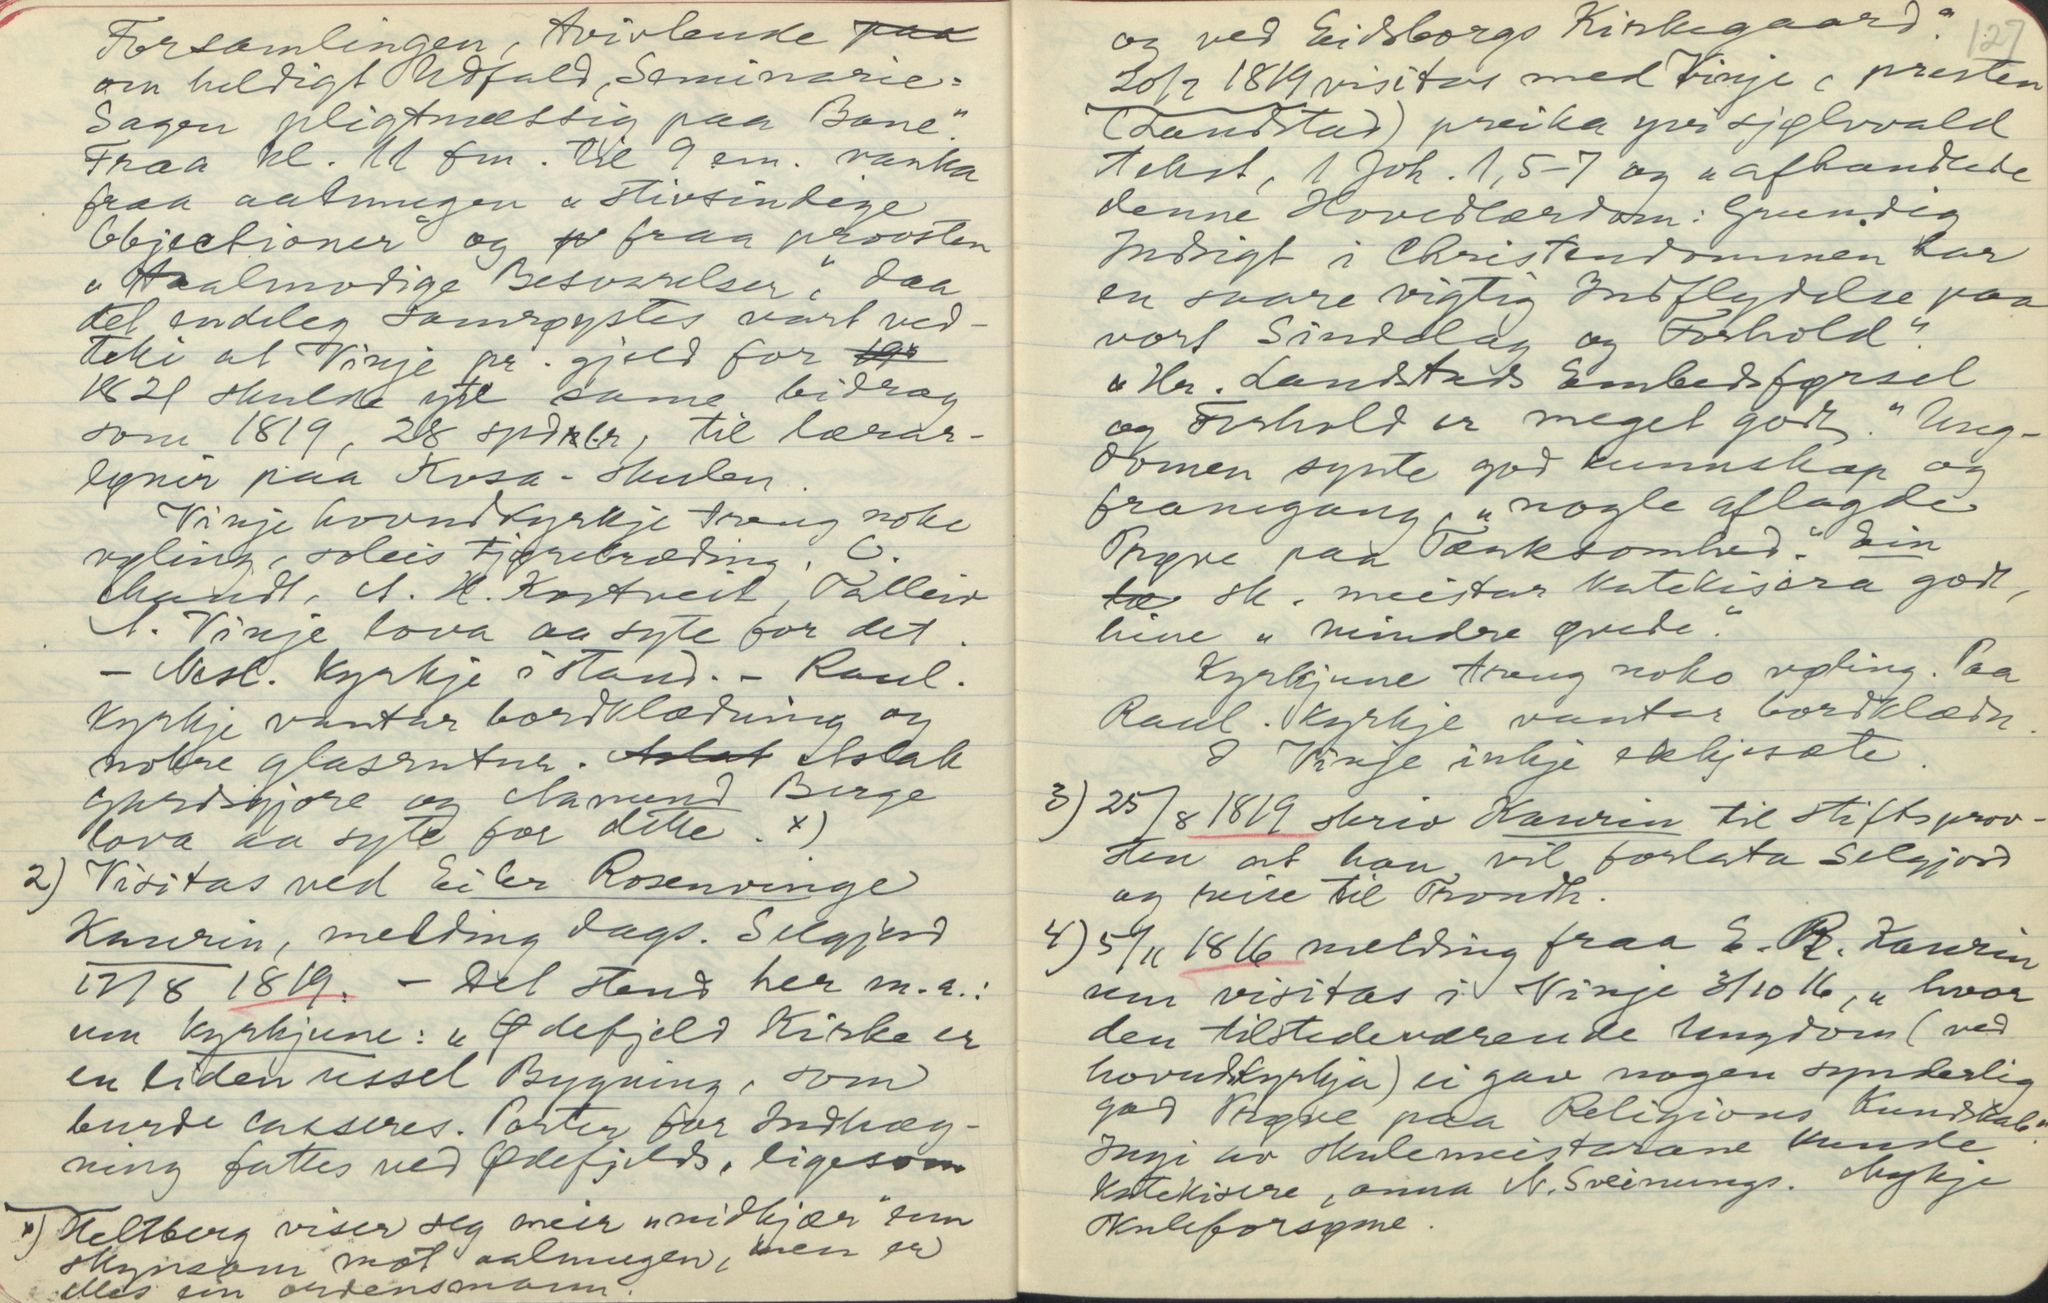 Forsamlingen, tvivlende paa
om heldigt Udfald, Seminarie-
Sagen pligtmæssig paa Bane“.
Fraa kl. 11 fm. til 9 em. vanka
fraa aalmugen „stivsindige
Objectioner“ og fraa proosten
„Taalmodige Besvarelser“, daa
det endeleg samrøystes vart ved-
teki at Vinje pr.gjeld for
1821 skulde yte same bidrag
som 1819, 28 spdlr, til lærar-
løner paa Kosa-skulen.
Vinje hovudkyrkje trong noko
vøling, soleis tjørebræding. O.
Mandt, A. H. Kostveit, Talleiv
A. Vinje lova aa syte for det.
– Nesl. kyrkje i stand. – Raul.
kyrkje vantar bordklædning og
nokre glasrutur. Aslak Aslak
Gardsgjore og Aamund Berge
lova aa syte for dette. x)
2) Visitas ved Eiler Rosenvinge
Kaurin, melding dags. Selgjord
17/8 1819. – Det stend her m.a.:
um kyrkjune: „Ødefjeld Kirke er
en liden ussel Bygning, som
burde casseres. Porter for Indhæg-
ning fattes ved Ødefjelds, ligesom
x) Heltberg viser seg meir „nidkjær“ enn
skynsam mot aalmugen, men er
elles ein ordensmann.
127
og ved Eidsborgs Kirkegaard“.
20/7 1819 visitas med Vinje, presten
(Landstad) preika yvi sjølvvald
tekst, 1 Joh. 1,5-7 og „afhandlede
denne Hovedlærdom: Grundig
Indsigt i Christendommen har
en saare vigtig Indflydelse paa
vort Sindelag og Forhold“.
„Hr. Landstads Embedsførsel
og Forhold er meget godt.“ Ung-
domen synte god kunnskap og
framgang, „nogle aflagde
Prøve paa Tænksomhed.“ Ein
sk.meistar katekisera godt,
hine „mindre øvede“.
Kyrkjune trong noko vøling. Paa
Raul. kyrkje vantar bordklædn.
I Vinje inkje ekkjesæte.
3) 25/8 1819 skriv Kaurin til stiftsproo-
sten at han vil forlata Selgjord
og reise til Trondh.
4) 5/11 1816 melding fraa E. R. Kaurin
um visitas i Vinje 3/10 16, „hvor
den tilstedeværende Ungdom (ved
hovudkyrkja) ei gav nogen synderlig
god Prøve paa Religions Kundskab“.
Ingi av skulemeistarane kunde
katekisere, anna N. Sveinungs. Mykje
skuleforsøme.